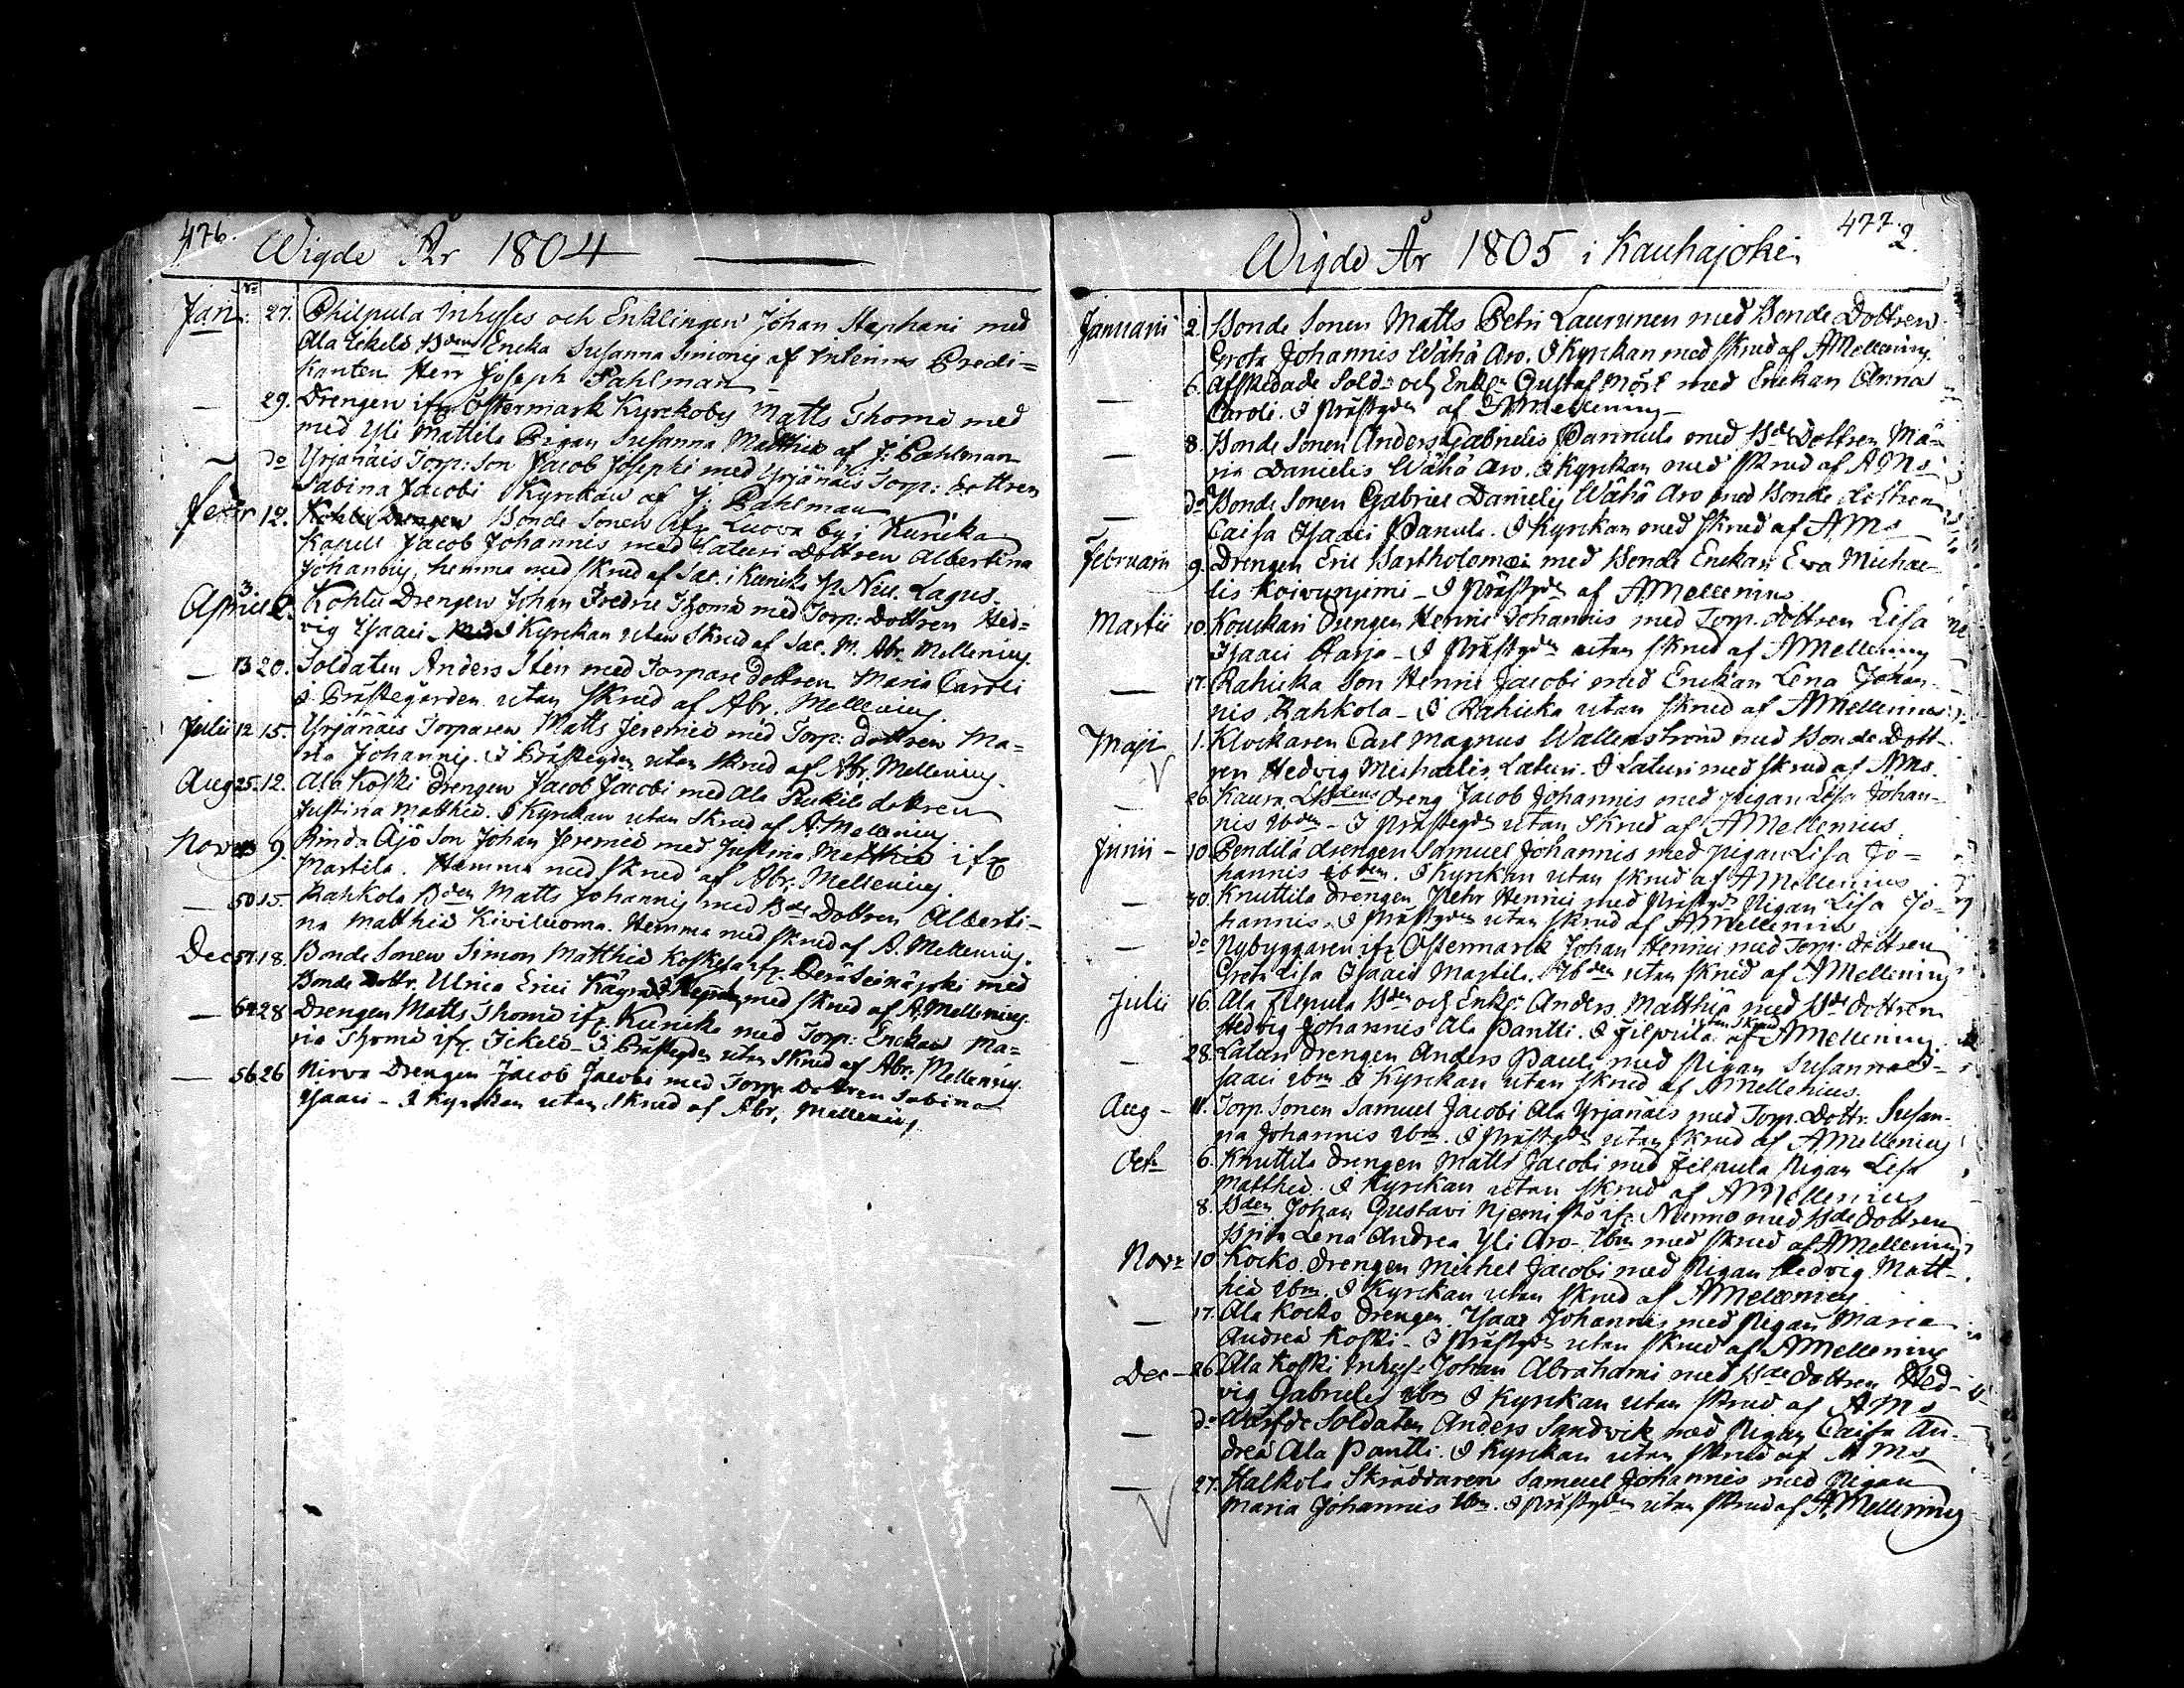 476.
Wigde År 1804
Jan: 27. Philpula Inhyses och Enklingen Johan Staphani med
Ala Ickelä Bdens Encka Susanna Simonis af Intenins Predi=
kanten Herr Joseph Pahlman
— 29. Drengen ifr Östermark Kyrckoby Matts Thomæ med
med Yli Mattila Pigan Susanna Matthiæ af J: Pahlman
— do Yrjänäis Torp: Son Jacob Josephi med Yrjänäis Torp: dottren
Sabina Jacobi Kyrckan af J. Pahlman
febr 12. Bonde Sonen ifr Luova by, Kuricka
Kapell Jacob Johannis med Laturi Dottren Albertina
Johannis, hemma med skrud af Sac. i Kurick. Nic. Lagus.
April 3 2. Kohlu Drengen Johan Fredric Thomæ med Torp: dottren Hed=
vig Isaaci I Kyrckan utan Skrud af Sac. M. Abr. Mellenius.
— 13 20. Soldaten Anders Sten med Torpare dottren Maria Caroli
I Prästegården utan Skrud af Abr. Mellenius.
Julii 12 15. Yrjänäis Torparen Matts Jeremiæ med Torp: dottren Ma=
ria Johannis. I Prästegden utan Skrud af Abr. Mellenius.
Aug 25. 12. Ala Koski Drengen Jacob Jacobi med Ala dottren
Justina Matthiæ. I Kyrckan utan Skrud af A. Mellenius
Nov 9. Rinda Äjö Son Johan Jeremiæ med Justina Matthiæ ifr
Martila. Hemma med Skrud af Abr. Mellenius.
— 50 15. Rahkola Bden Matts Johannis med Bde Dottren Alberti-
na Matthiæ Kiviluoma. Hemma med skrud af A. Mellenius.
Dec 51. 18. Bonde Sonen Simon Matthiæ Koskela ifr. Peräseinäjoki med
Bonde Dottr. Ulrica Erici Käyrä med skrud af A. Mellenius.
— 28 Drengen Matts Thomæ ifr. Kuricka med Torp: Enckan Ma=
ria Thomæ ifr. Ickelä - I Prästegden utan Skrud af Abr. Mellenius.
— 56 26 Nirva Drengen Jacob Jacobi med Torp: Dottren Sabina
Isaaci - I Kyrckan utan Skrud af Abr. Mellenius
477. 2.
Wigde År 1805 i Kauhajoki
Januarii 2. Bonde Sonen Matts Petri Laurunen med Bonde Dottren
Greta Johannis Wähä Aro. I Kyrckan med skrud af AMellenius.
— 6. Afskedade Sold: och Enkl: Gustaf Mörk med Enckan Anna
Caroli. I Prästgden af AMellenius
— 8. Bonde Sonen Anders Gabrielis Pannula med Bde Dottren Ma-
ria Danielis Wähä Aro. I Kyrckan med Skrud af AMs
— do Bonde Sonen Gabriel Danielis Wähä Aro med Bonde dottren
Caisa Isaaci Panula. I Kyrckan med skrud af AMs
Februarii 9. Drengen Eric Bartholomæi med Bonde Enckan Eva Michae-
lis Koivunjemi - I Prästgden af AMellenius
Martii 10. Kouckari Drengen Henric Johannis med Torp. dottren Lisa
Isaaci Harja - I Prästgden utan skrud af AMellenius
— 17. Rahicka Son Henric Jacobi med Enckan Lena Johan-
nis Rahkola - I Rahicka utan Skrud af AMellenius
Maji 1. Klockaren Carl Magnus Wallenström med Bonde Dott-
ren Hedvig Michaelis Laturi. I Laturi med skrud af AMs.
— 26. Kaura Bdens dreng Jacob Johannis med pigan Lisa Johan-
nis ibdem - I Prästegden utan Skrud af AMellenius.
Junii - 10. Pendilä drengen Samuel Johannis med pigan Lisa Jo=
hannis ibdem. I Kyrckan utan skrud af AMellenius
— 30. Knuttila Drengen Petr Henrici med Prästgds Pigan Lisa Jo-
hannis. I Prästgden utan skrud af AMellenius
— do Nybyggaren ifr Östermarck Johan Henrici med Torp: dottren
Greta Lisa Isaaci Martila. Ibdem utan skrud af AMellenius
Julii 16. Ala Filpula Bden och Enkl: Anders Matthiæ med Bde dottren
Hedvig Johannis Ala Pantti. I Filpula utan skrud af AMellenius.
— 28. Laturi drengen Anders Pauli med Pigan Susanna I-
saaci ibm I Kyrckan utan skrud af AMellenius.
Aug - 11. Torp. Sonen Samuel Jacobi Ala Yrjänäis med Torp. Dottr. Susan-
na Johannis ibm. I Prästgden utan skrud af AMellenius
Octr 6. Knuttila Drengen Matts Jacobi med Filpula Pigan Lisa
Matthiæ. I Kyrckan utan skrud af AMellenius
8. Bden Johan Gustavi Njemistö ifr Nurmo med Bde dottren
Brita Lena Andreæ Yli Aro - ibm med skrud af AMellenius
Novr 10. Kocko drengen Michel Jacobi med Pigan Hedvig Matt-
hiæ ibm. I Kyrckan utan skrud af AMellenius
— 17. Ala Kocko drengen Isaac Johannis med Pigan Maria
Andreæ Koski - I Prästgden utan skrud af AMellenius
Dec - 26. Ala Koski Inhys: Johan Abrahami med Bde dottren Hed-
vig Gabrielis ibm I Kyrckan utan Skrud af AMs
— do Soldaten Anders Sandvik med Pigan Caisa An-
dreæ Ala Pantti. I Kyrckan utan skrud af AMs
— 27. Halkola Skräddaren Samuel Johannis med Pigan
Maria Johannis ibm. I Prästgden utan skrud af A. Mellenius